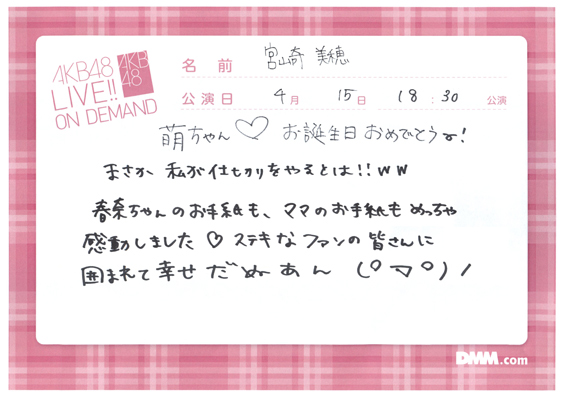 AKB48
LIVE!!
ON DEMAND
AKB
48
名前 宮崎 美穂
公演日 4月 15日 18:30 公演
萌ちゃん♡ お誕生日おめでとうー!
まさか 私が仕切りをやるとは!!ww
春奈ちゃんのお手紙も、ママのお手紙もめっちゃ
感動しました♡ ステキなファンの皆さんに
囲まれて幸せだぬぁん (°▽°)ノ
DMM.com